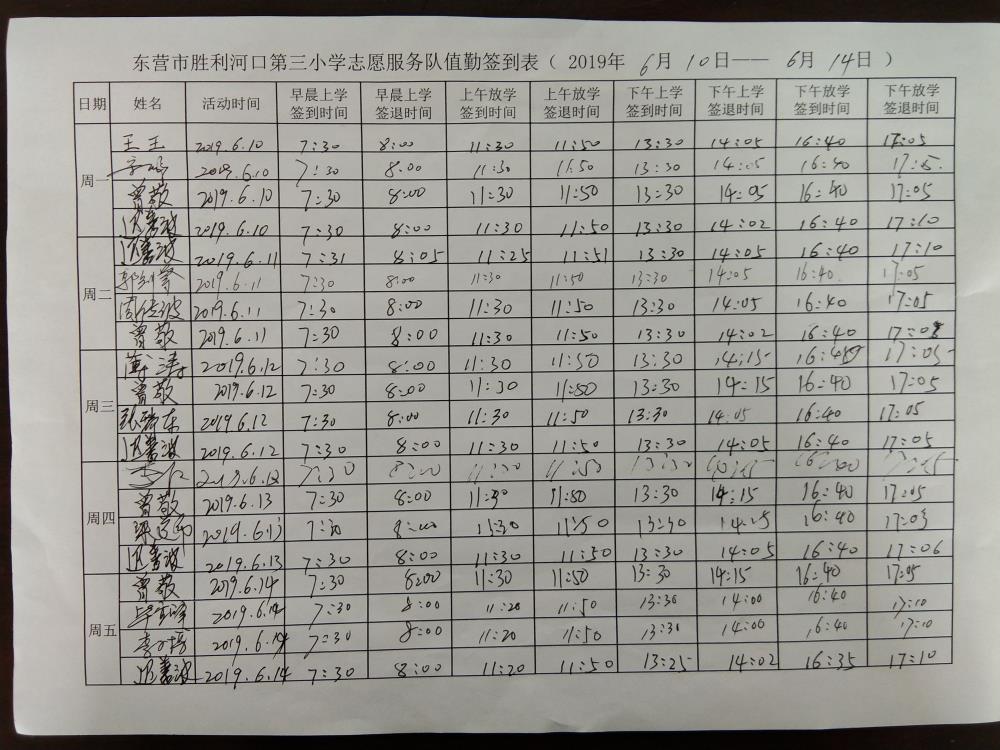 东营市胜利河口第三小学志愿服务队值勤签到表（ 2019年 6月 10日—— 6月 14日 ）
日期 姓名 活动时间 早晨上学签到时间 早晨上学签退时间 上午放学签到时间 上午放学签退时间 下午上学签到时间 下午上学签退时间 下午放学签到时间 下午放学签退时间
周一 王王 2019.6.10 7:30 8:00 11:30 11:50 13:30 14:05 16:40 17:05
2019.6.10 7:30 8:00 11:30 11:50 13:30 14:05 16:40
曾敬 2019.6.10 7:30 8:00 11:30 11:50 13:30 14:05 16:40 17:05
2019.6.10 7:30 8:00 11:30 11:50 13:30 14:02 16:40 17:10
周二 2019.6.11 7:31 8:05 11:25 11:51 13:30 14:05 16:40 17:10
2019.6.11 7:30 8:00 11:30 11:50 13:30 14:05 16:40 17:05
2019.6.11 7:30 8:00 11:30 11:50 13:30 14:05 16:40 17:05
曾敬 2019.6.11 7:30 8:00 11:30 11:50 13:30 14:02 16:40
周三 2019.6.12 7:30 8:00 11:30 11:50 13:30 14:15 17:05
曾敬 2019.6.12 7:30 8:00 11:30 11:50 13:30 14:15 16:40 17:05
2019.6.12 7:30 8:00 11:30 11:50 13:30 14:05 16:40 17:05
2019.6.12 7:30 8:00 11:30 11:50 13:30 14:05 16:40 17:05
周四 7:30 8:00 11:30 11:50 13:30
曾敬 2019.6.13 7:30 8:00 11:30 11:50 13:30 14:15 16:40 17:05
2019.6.13 7:30 8:00 11:30 11:50 13:30 16:40 17:03
2019.6.13 7:30 8:00 11:30 11:50 13:30 14:05 16:40 17:06
周五 曾敬 2019.6.14 7:30 8:00 11:30 11:50 13:30 14:15 16:40 17:05
2019.6.14 7:30 8:00 11:20 11:50 13:30 14:00 16:40 17:10
2019.6.14 7:30 8:00 11:20 11:50 13:30 14:00 16:40 17:10
2019.6.14 7:30 8:00 11:20 11:50 13:25 14:02 16:35 17:10